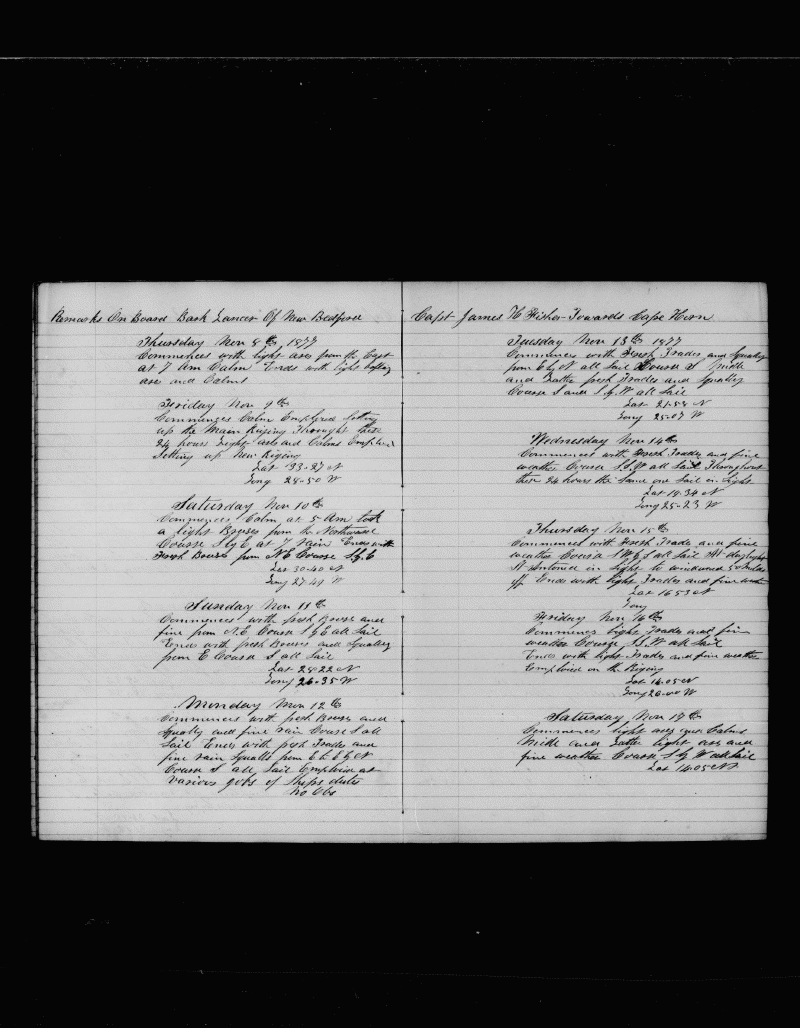 Remarks On Board Bark Lancer Of New Bedford
Thursday Nov 8th 1877
Commences with light airs from the East
at 7 Am Calm Ends with light baffling
airs and Calms
Friday Nov 9th
Commences Calm Employed Setting
up the Main Riging Throught these
24 hours Light airs and Calms Employed
Setting up New Riging
Lat 33-27 N
Long 28-50 W
Saturday Nov 10th
Commences Calm at 5 Am took
a light Breeses from the Northward
Course S by E at 7 rain Ends with
Fresh Breeses from N.E Course S by E
Lat 30-40 N
Long 27-41 W
Sunday Nov 11th
Commences with fresh Breese and
fine from N.E. Course S by E all Sail
Ends with fresh Breeses and Squalley
from E Course S all Sail
Lat 28-22 N
Long 26-35 W
Monday Nov 12th
Commences with fresh Breese and
Squally and fine rain Course S all
Sail Ends with fresh Trades and
fine rain Squalls from E by N
Course S all Sail Employed at
Various jobs of Ships duties
No Obs
Capt James H Fisher Towards Cape Horn
Tuesday Nov 13th 1877
Commences with Fresh Trades and Squalley
from E by N all Sail Course S Middle
and Latter fresh Trades and Squalley
Course S and S by W all Sail
Lat 21-54 N
Long 25-07 W
Wednesday Nov 14th
Commences with Fresh Trades and fine
weather Course S by W all Sail Throughout
these 24 hours the Same one Sail in Sight
Lat 19-34 N
Long 25-23 W
Thursday Nov 15th
Commences with Fresh Trades and fine
weather Course all Sail At daylight
St Antonio in Sight to windward 50 Miles
off Ends with light Trades and fine weather
Lat 16 53 N
Long
Friday Nov 16th
Commences light Trades and fine
weather Course S.W all Sail
Ends with light Trades and fine weather
Employed on the Riging
Lat 14-05 N
Long 26-00 W
Saturday Nov 17th
Commences light airs and Calms
Middle and Latter light airs and
fine weather Course S by W all Sail
Lat 14-05 N